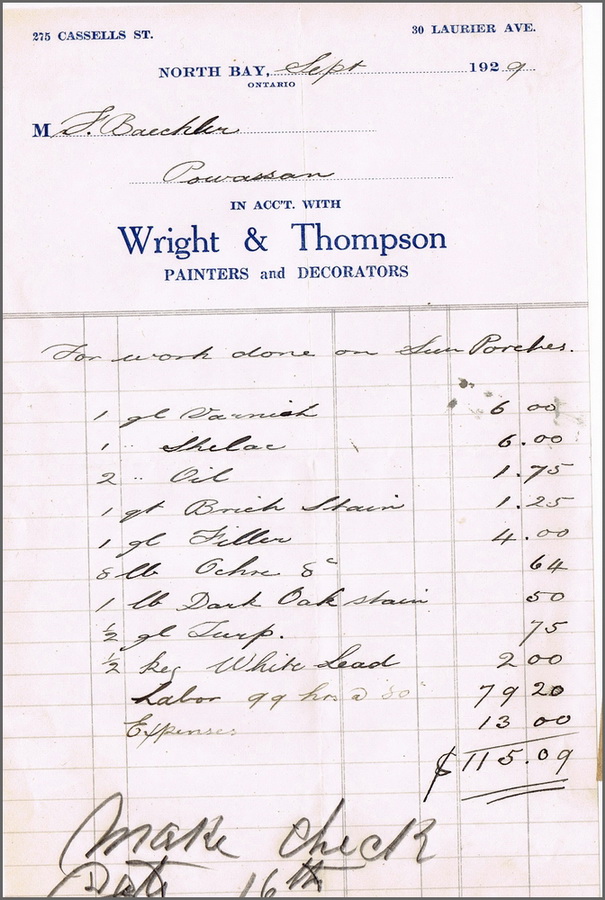 275 CASSELLS ST. 30 LAURIER AVE.
NORTH BAY, Sept 1929
ONTARIO
M F. Baechler
Powassan
IN ACC'T. WITH
Wright & Thompson
PAINTERS and DECORATORS
For work done on Sun Porches.
1 gl Varnish 6 00
1 " Shelac 6.00
2 " Oil 1.75
1 qt Brick Stain 1.25
1 gl Filler 4.00
8 lb Ochre 8c 64
1 lb Dark Oak stain 50
½ gl Turp. 75
½ keg White Lead 2 00
Labor 99 hrs @ 80c 79 20
Expenses 13 00
$115.09
Make check
Date 16th